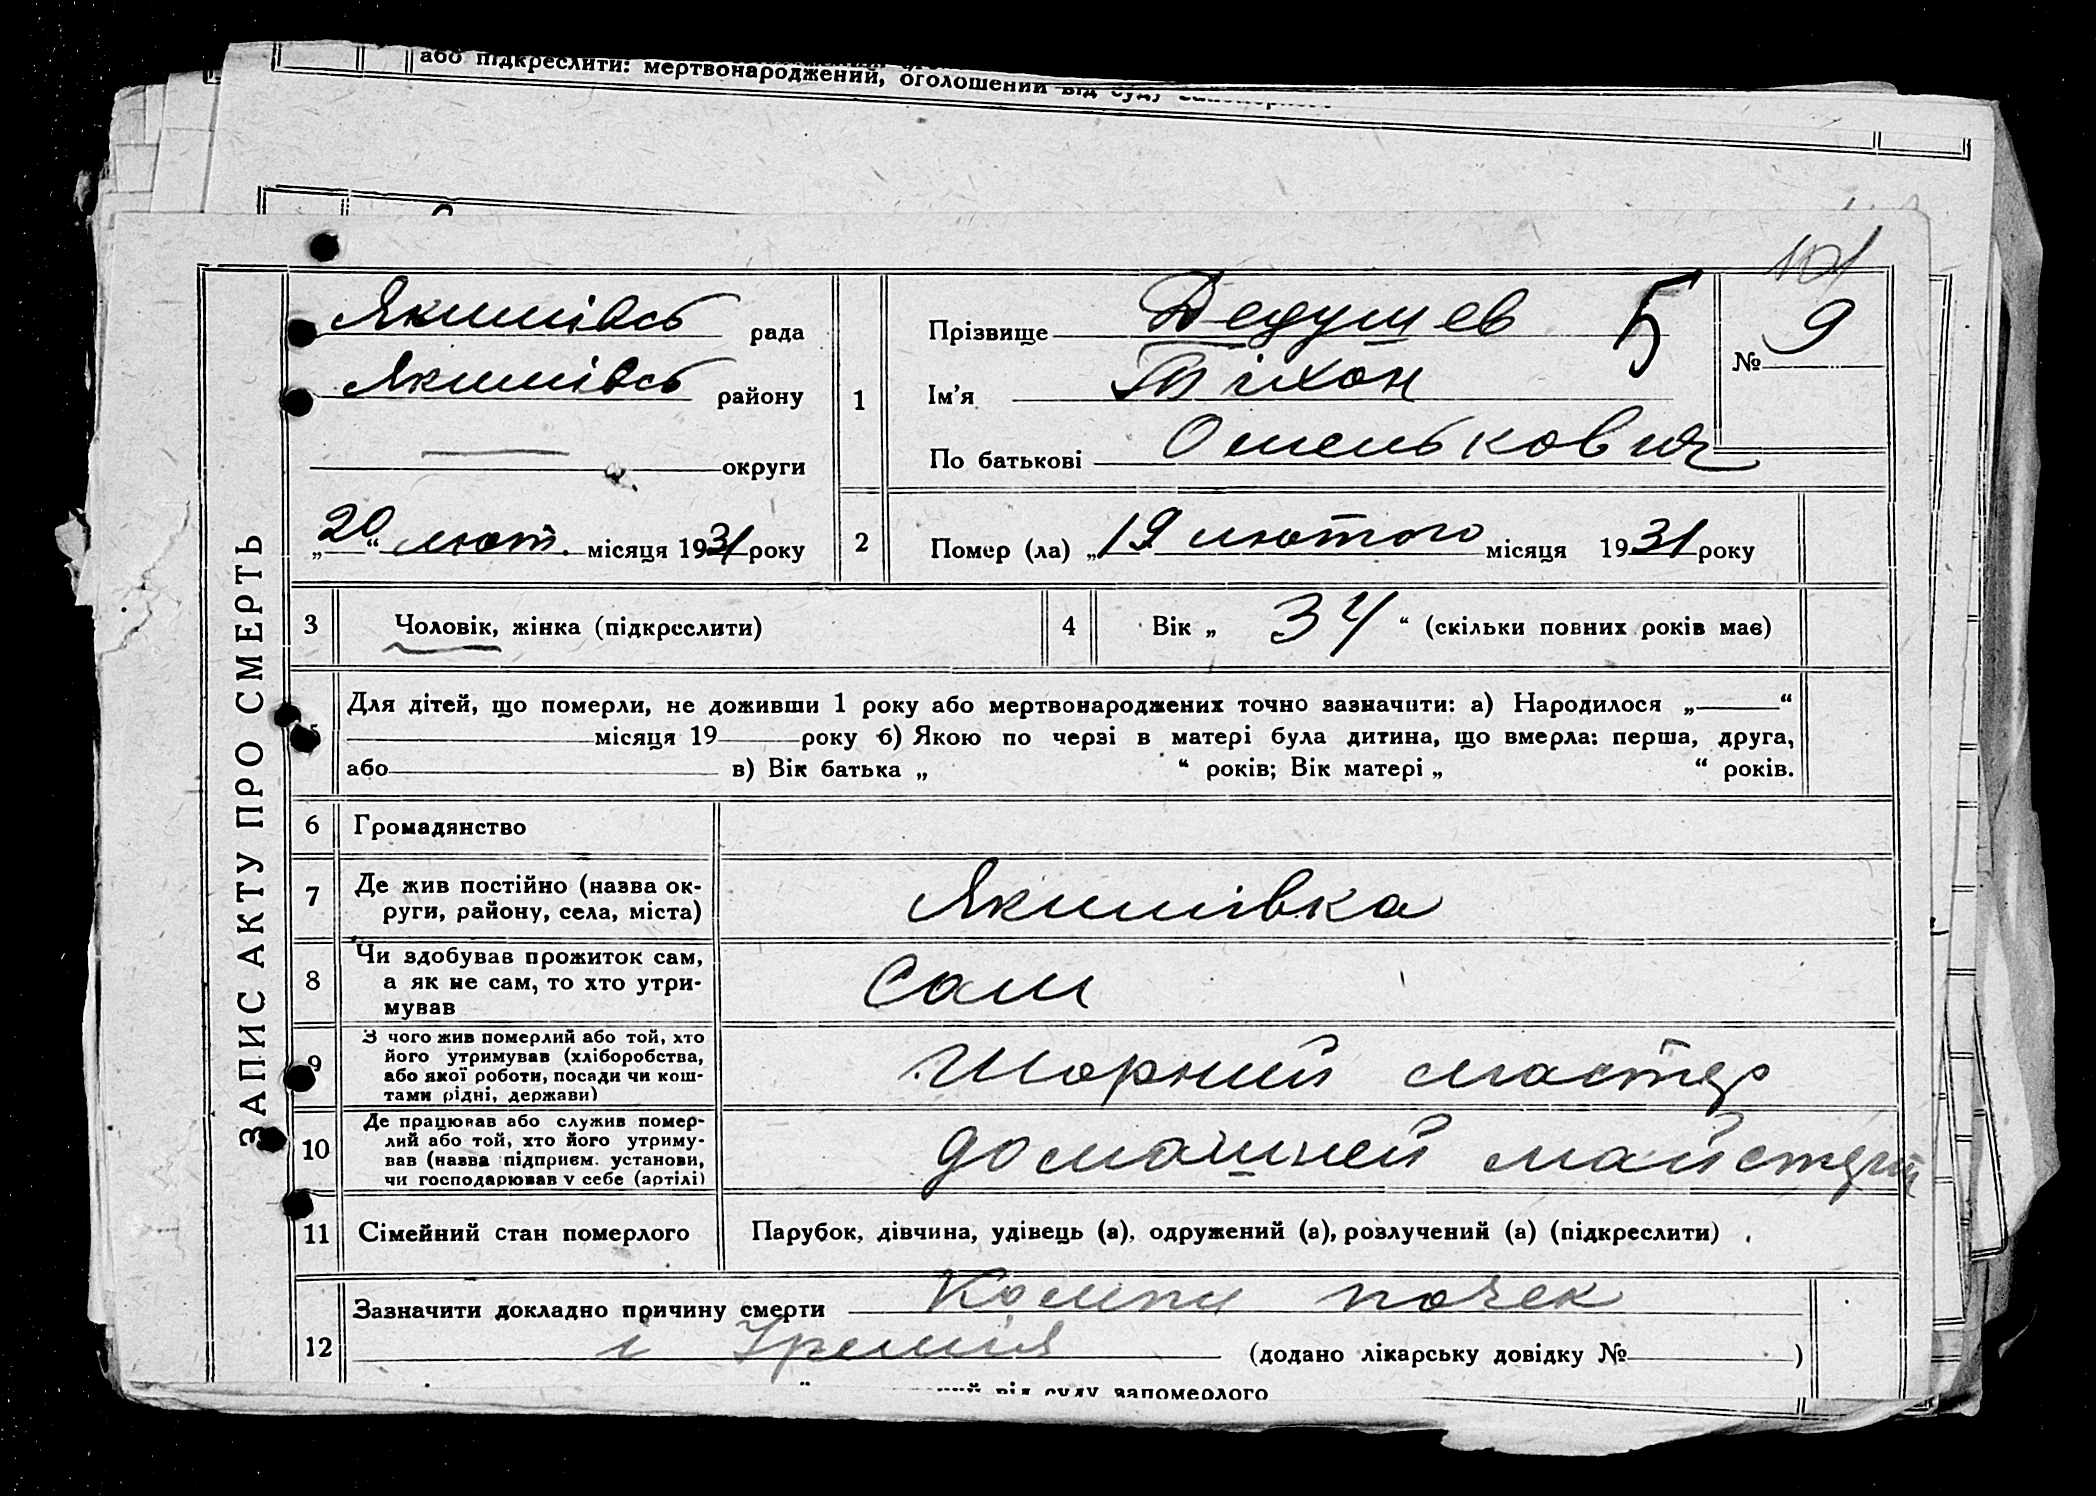 або підкреслити: мертвонароджений, оголошений від суду
101
ЗАПИС АКТУ ПРО СМЕРТЬ
Якимівсь рада
Якимівсь району
округи
„20“ лют. місяця 1931 року
1
Прізвище Дедушев 5
Ім'я Тіхон
По батькові Омелькович
№ 9
2
Помер (ла) „19 лютого місяця 1931 року
3 Чоловік, жінка (підкреслити)
4 Вік „ 34 “ (скільки повних років має)
5
Для дітей, що померли, не доживши 1 року або мертвонароджених точно зазначити: а) Народилося „ “
місяця 19 року б) Якою по черзі в матері була дитина, що вмерла: перша, друга,
або в) Вік батька „ “ років; Вік матері „ “ років.
6 Громадянство
7 Де жив постійно (назва ок-
руги, району, села, міста)
Якимівка
8 Чи здобував прожиток сам,
а як не сам, то хто утри-
мував
Сам
9 З чого жив померлий або той, хто
його утримував (хліборобства,
або якої роботи, посади чи кош-
тами рідні, держави)
Шорний мастер
10 Де працював або служив помер-
лий або той, хто його утриму-
вав (назва підприєм. установи,
чи господарював у себе (артілі)
домашней
11 Сімейний стан померлого
Парубок, дівчина, удівець (а), одружений (а), розлучений (а) (підкреслити)
12
Зазначити докладно причину смерти почек
і (додано лікарську довідку № )
від суду запомерлого